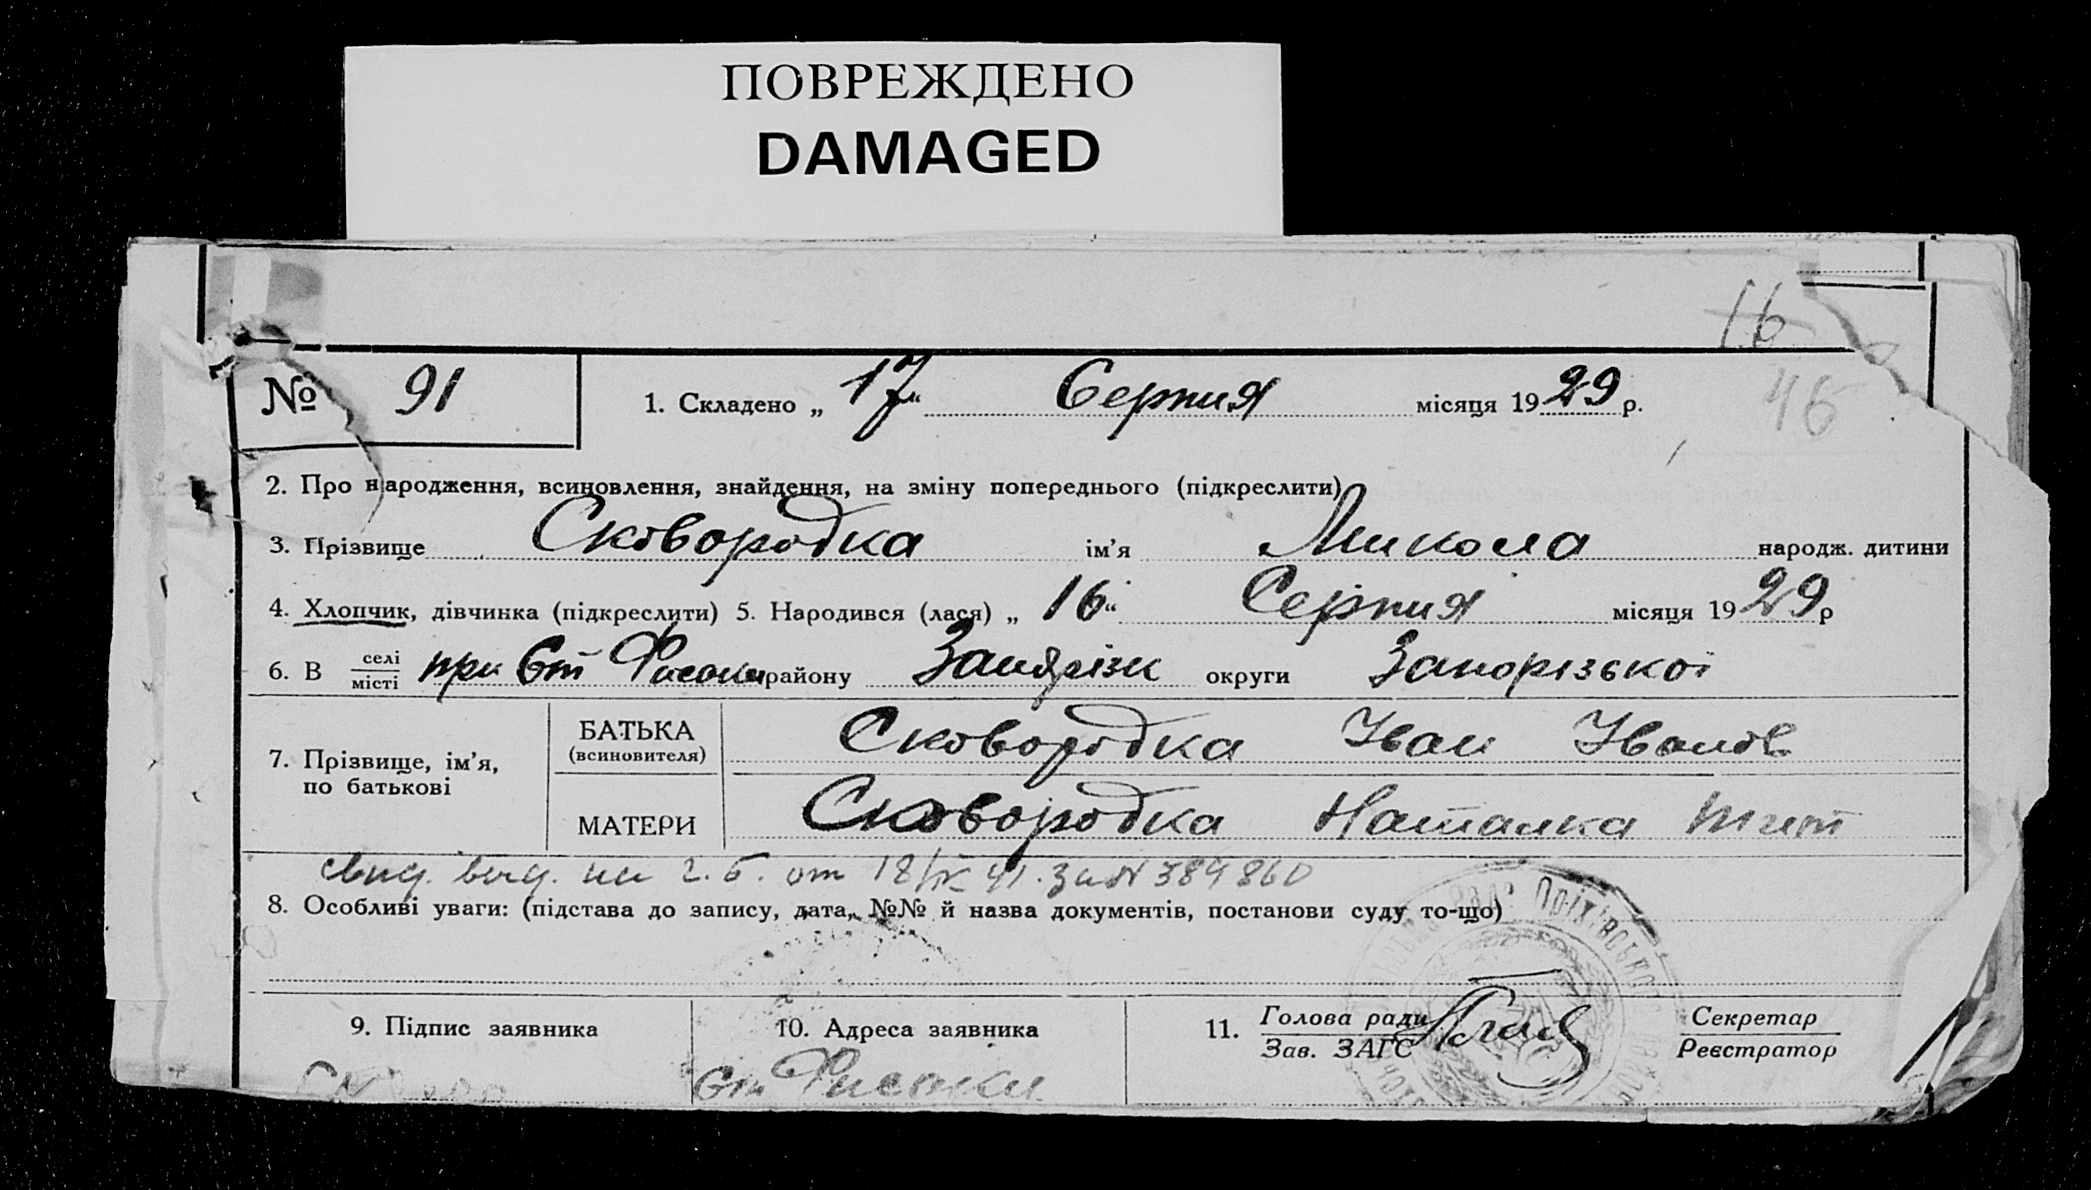 ПОВРЕЖДЕНО
DAMAGED
16
№ 91
1. Складено „17“ Серпня місяця 1929 р.
46
2. Про народження, всиновлення, знайдення, на зміну попереднього (підкреслити)
3. Прізвище Сковородка ім’я Микола народж. дитини
4. Хлопчик, дівчинка (підкреслити) 5. Народився (лася) „16“ Серпня місяця 1929 р
6. В селі місті при Ст Фисаки району округи Запорізької
7. Прізвище, ім’я, по батькові
БАТЬКА (всиновителя) Сковородка Іван Іванов
МАТЕРИ Сковородка Наталка Тит
свид. выд. на г. б. от 18/IX 41. за № 389860
8. Особливі уваги: (підстава до запису, дата, №№ й назва документів, постанови суду то-що)
Оріхівського
9. Підпис заявника
10. Адреса заявника
11. Голова ради Зав. ЗАГС
Секретар Реєстратор
Ст Фисаки